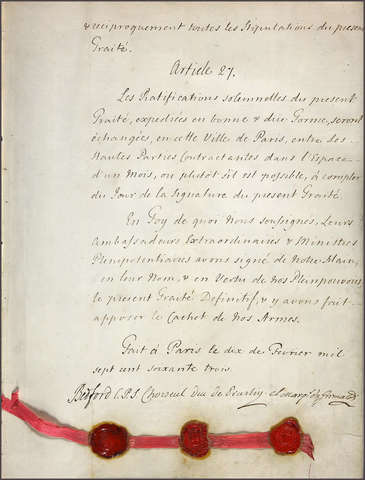 & réciproquement toutes les Stipulations du présent
Traité.
Article 27.
Les Ratifications solemnelles du présent
Traité, expediées en bonne & due Forme, seront
échangées, en cette Ville de Paris, entre les
Hautes Parties Contractantes dans l'Espace
d'un Mois, ou plutôt s'il est possible, à compter
du Jour de la Signature du présent Traité.
En Foy de quoi Nous soussignés, Leurs
Ambassadeurs Extraordinaires & Ministres
Plenipotentiaires avons signé de Notre Main,
en leur Nom, & en Vertu de nos Pleinpouvoirs
le présent Traité Definitif, & y avons fait
apposer le Cachet de nos Armes.
Fait à Paris le dix de Fevrier mil
sept cent soixante trois
Bedford C.P.S. Choiseul Duc de Praslin el Marqs de Grimaldi